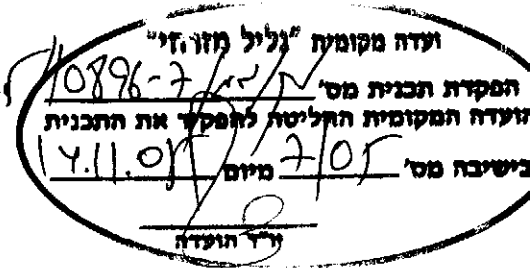 ועדה מקומית "גליל מזרחי"
הפקדת תכנית מס' 10896-7
הועדה המקומית החליטה להפקיד את התכנית
בישיבה מס' 7/05 מיום 14.11.05
יו"ר הועדה